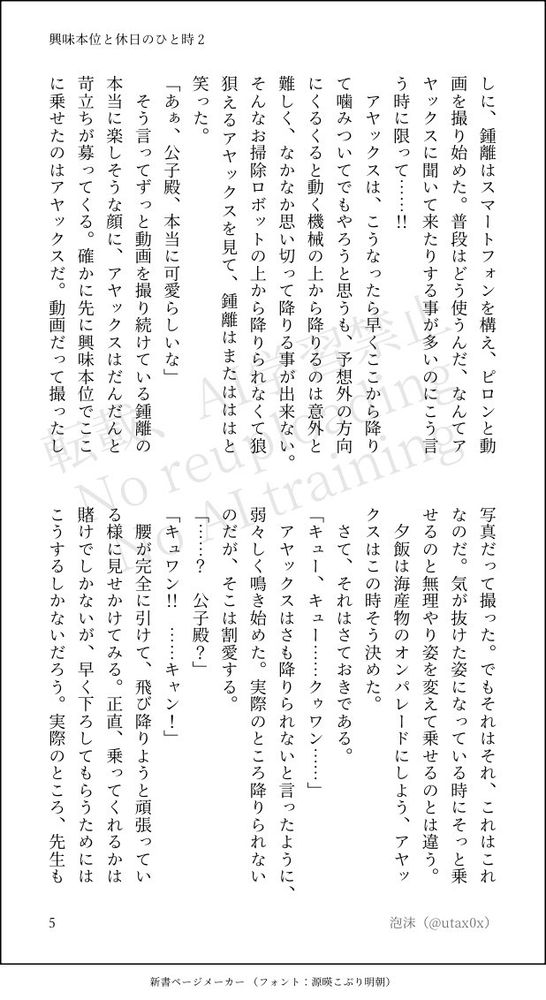 興味本位と休日のひと時2
しに、鍾離はスマートフォンを構え、ピロンと動
画を撮り始めた。普段はどう使うんだ、なんてア
ヤックスに聞いて来たりする事が多いのにこう言
う時に限って……!!
アヤックスは、こうなったら早くここから降り
て噛みついてでもやろうと思うも、予想外の方向
にくるくると動く機械の上から降りるのは意外と
難しく、なかなか思い切って降りる事が出来ない。
そんなお掃除ロボットの上から降りられなくて狼
狽えるアヤックスを見て、鍾離はまたはははと
笑った。
「あぁ、公子殿、本当に可愛らしいな」
そう言ってずっと動画を撮り続けている鍾離の
本当に楽しそうな顔に、アヤックスはだんだんと
苛立ちが募ってくる。確かに先に興味本位でここ
に乗せたのはアヤックスだ。動画だって撮ったし
写真だって撮った。でもそれはそれ、これはこれ
なのだ。気が抜けた姿になっている時にそっと乗
せるのと無理やり姿を変えて乗せるのとは違う。
夕飯は海産物のオンパレードにしよう、アヤッ
クスはこの時そう決めた。
さて、それはさておきである。
「キュー、キュー……クゥワン……」
アヤックスはさも降りられないと言ったように、
弱々しく鳴き始めた。実際のところ降りられない
のだが、そこは割愛する。
「……？　公子殿？」
「キュワン!!　……キャン！」
腰が完全に引けて、飛び降りようと頑張ってい
る様に見せかけてみる。正直、乗ってくれるかは
賭けでしかないが、早く下ろしてもらうためには
こうするしかないだろう。実際のところ、先生も
転載、AI学習禁止
No reuploading
No AI training
5
泡沫（@utax0x）
新書ページメーカー（フォント：源暎こぶり明朝）